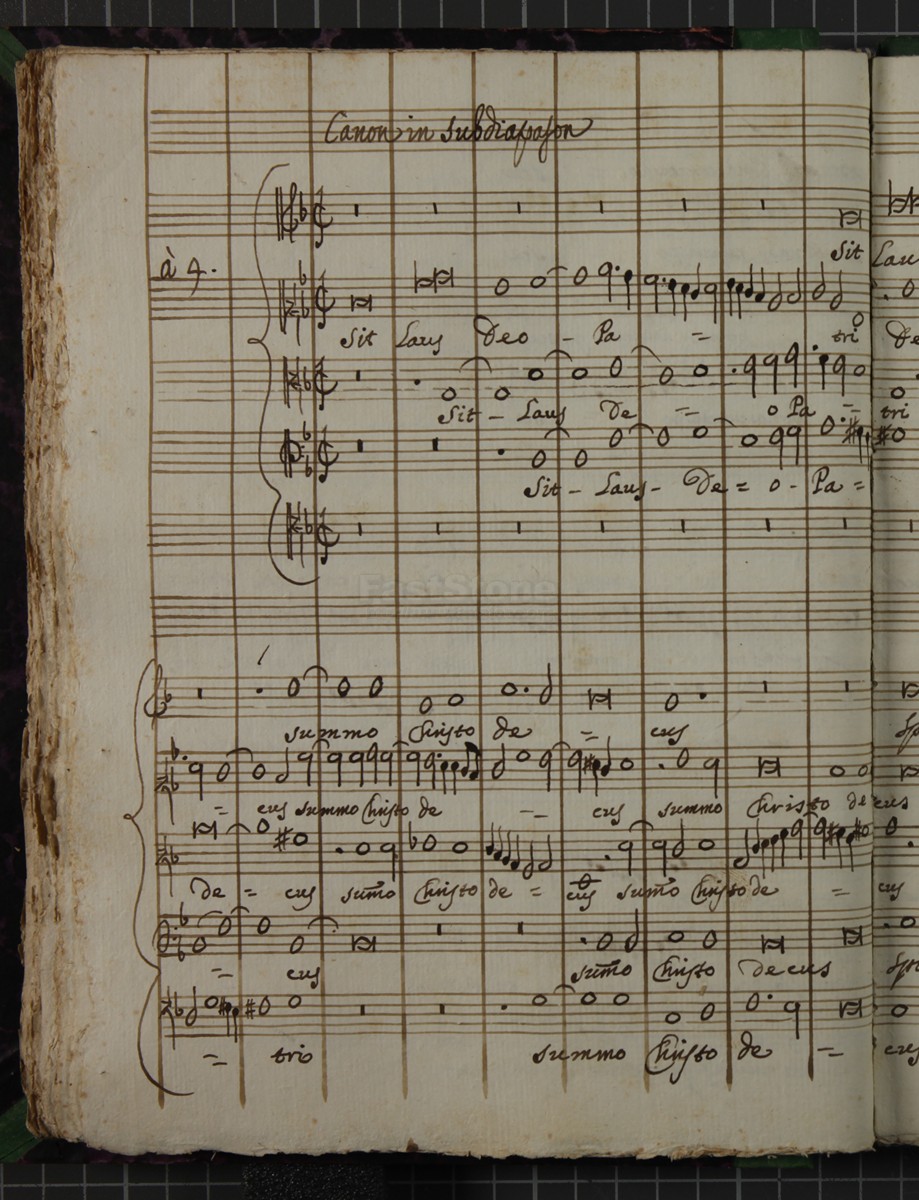 Canon in subdiapason
à 4.
Sit Lau
Sit Laus Deo - Pa = tri De
Sit - Laus De = o Pa = tri
Sit - Laus - De = o - Pa =
FastStone
summo Christo de = cus
= cus summo Christo de = cus summo Christo decus
De = cus sum̄o Christo de = cus sum̄o Christo de = cus
= cus sum̄o Christo decus
= trio summo Christo de = cus